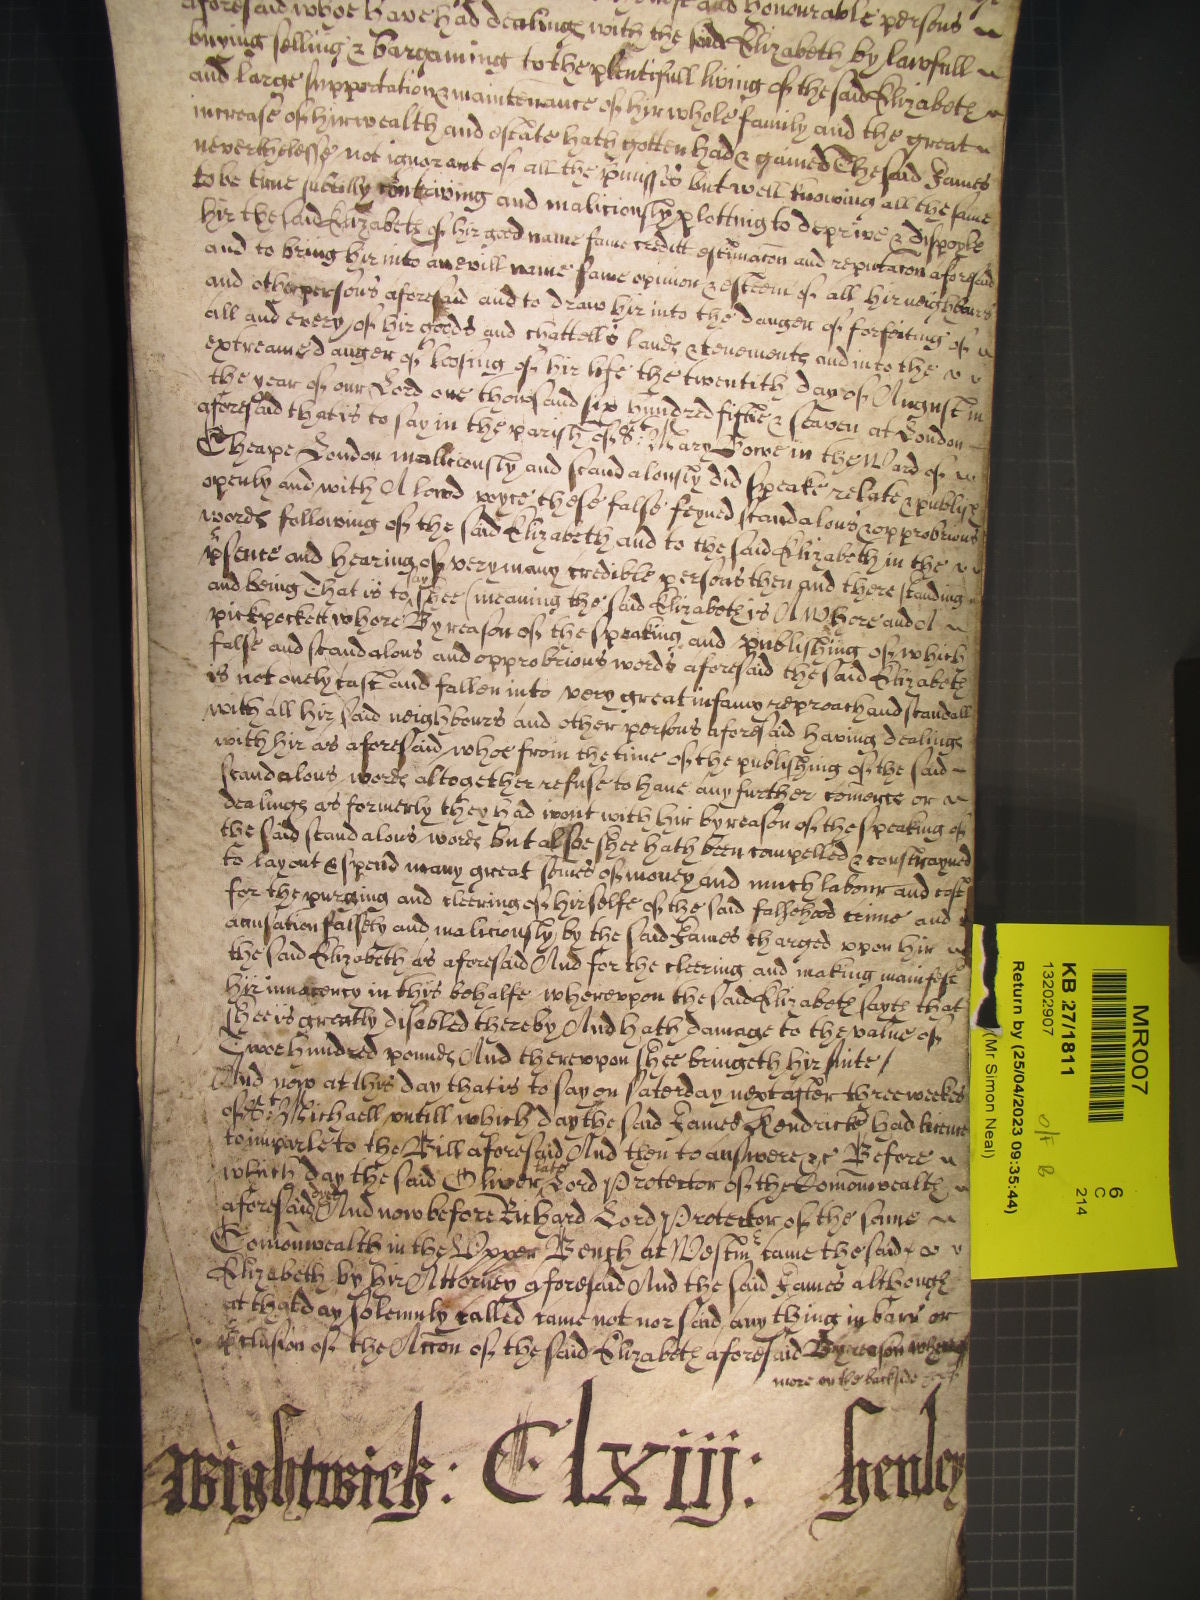 aforesaid whoe have had dealing with the said Elizabeth and honourable persons
buying selling & bargaining to the plentifull living of the said Elizabeth by lawfull
and large supportation & maintenance of hir whole family and the great
increase of hir wealth and estate hath gotten had & gained The said James
neverthelesse not ignorant of all the pmisses but well knowing all the same
to be true subtilly contriving and maliciously plotting to deprive & dispoyle
hir the said Elizabeth of hir good name fame creditt estimacon and reputacon aforesaid
and to bring hir into an evill name fame opinion & esteem of all hir neighbours
and other persons aforesaid and to draw hir into the danger of forfeiting of
all and every of hir goods and chattells lands & tenements and into the
extreame danger of loosing of hir life the twentith day of August in
the year of our Lord one thousand six hundred fiftie & seaven at London
aforesaid that is to say in the parish of St: Mary Bowe in the Ward of
Cheape London maliciously and scandalously did speake relate & publish
openly and with A lowd voyce these false feyned scandalous & opprobrious
words following of the said Elizabeth and to the said Elizabeth in the
psence and hearing of very many credible persons then and there standing
and being That is to say shee (meaning the said Elizabeth) is A Whore and A
pickpockett whore By reason of the speaking and publishing of which
false and scandalous and opprobrious words aforesaid the said Elizabeth
is not onely cast and fallen into very great infamy reproach and scandall
with all hir said neighbours and other persons aforesaid having dealings
with hir as aforesaid whoe from the time of the publishing of the said
scandalous words altogether refuse to have any further comerce or
dealings as formerly they had wont with hir by reason of the speaking of
the said scandalous words But alsoe shee hath been compelled & constrayned
to lay out & spend many great somes of money and much labour and cost
for the purging and cleering of hirselfe of the said falsehood crime and
acusation falsely and maliciously by the said James charged upon hir
the said Elizabeth as aforesaid And for the cleering and making manifest
hir innocency in this behalfe whereupon the said Elizabeth sayth that
shee is greatly disabled thereby And hath damage to the value of
Twoe hundred pounds And thereupon shee bringeth hir suite /
And now at this day that is to say on Saterday next after three weekes
of St: Michaell untill which day the said James Kendricke had licence
to imparle to the Bill aforesaid And then to answere &c Before
which day the said Oliver late Lord Protector of the Comonwealth
aforesaid And now before Richard Lord Protector of the same
Comonwealth in the Upper Bench at Westm came the said
Elizabeth by hir Attorney aforesaid And the said James although
at that day solemnly called came not nor said any thing in barr or
pclusion of the Accon of the said Elizabeth aforesaid By reason whereof
more on the backside
Wightwick: Clxiij: henley
MR007
KB 27/1811
13202907
Return by (25/04/2023 09:35:44)
(Mr Simon Neal)
6
C
214